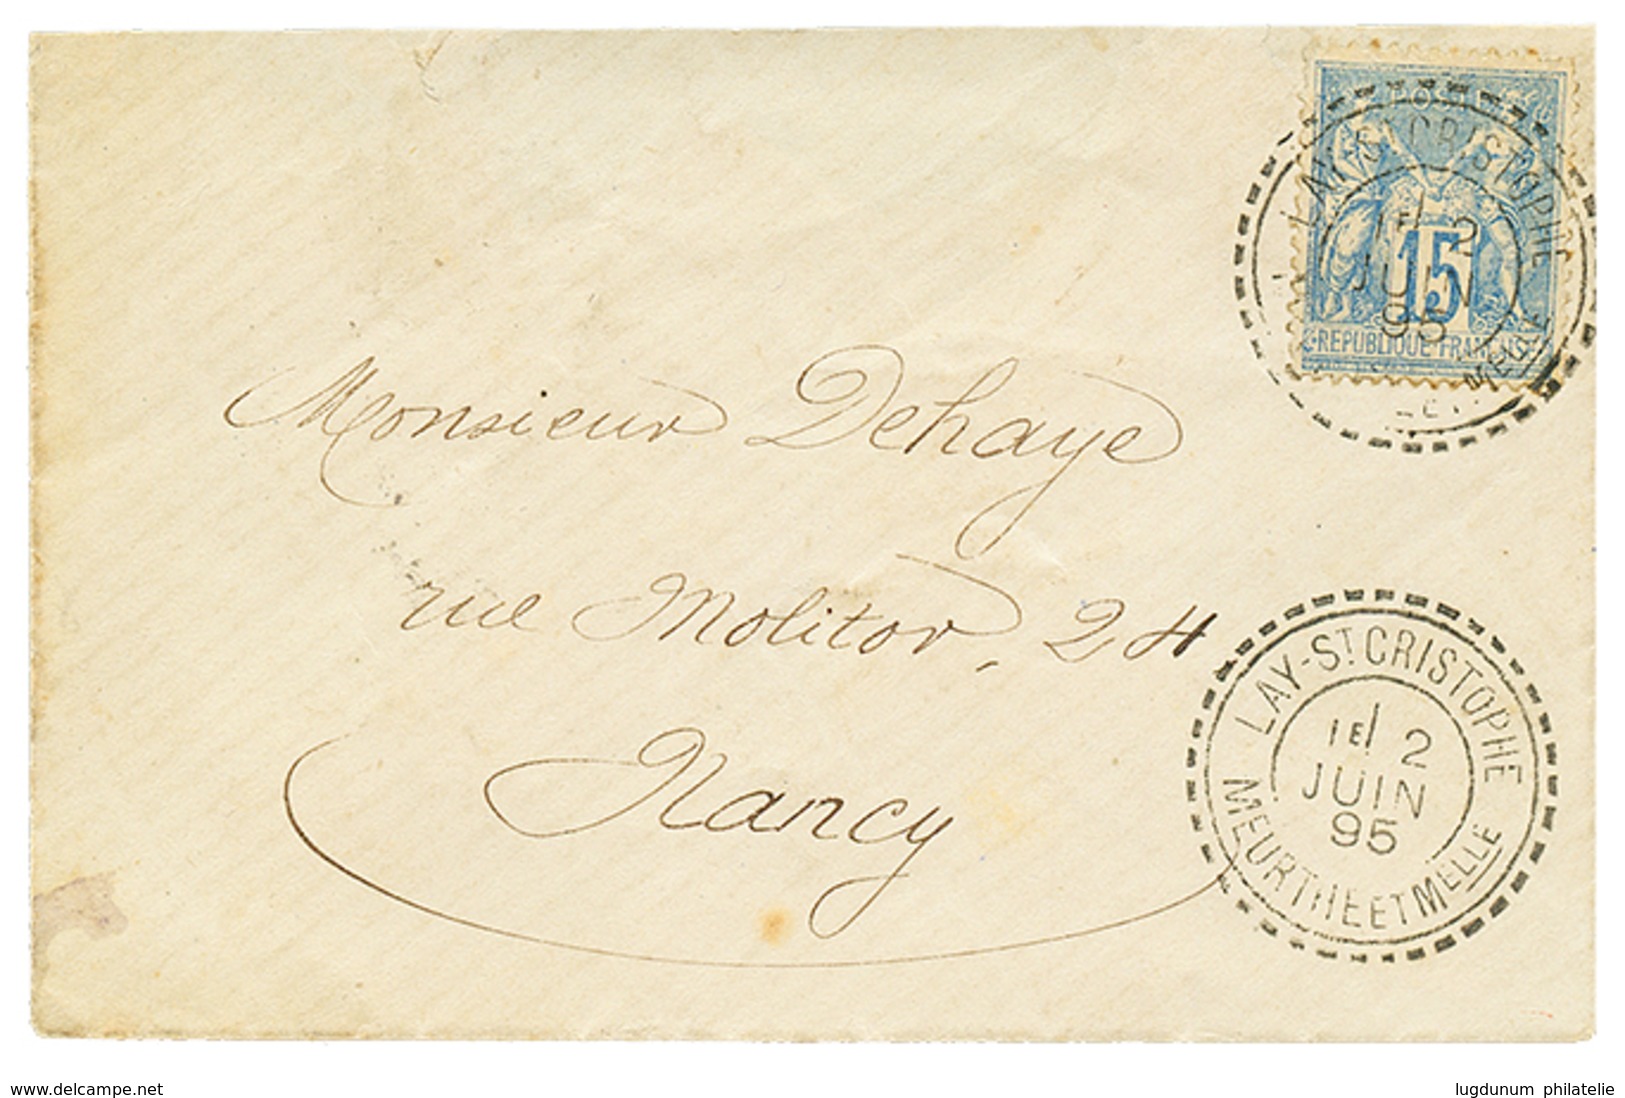 LAY-ST CRISTOPHE
1E/ 2
JUIN
95
15
REPUBLIQUE FRANCAISE
MELLE
Monsieur Dehaye
rue Molitor, 24
Nancy
LAY-ST CRISTOPHE
1E/ 2
JUIN
95
MEURTHE ET MELLE
www.delcampe.net
lugdunum philatelie